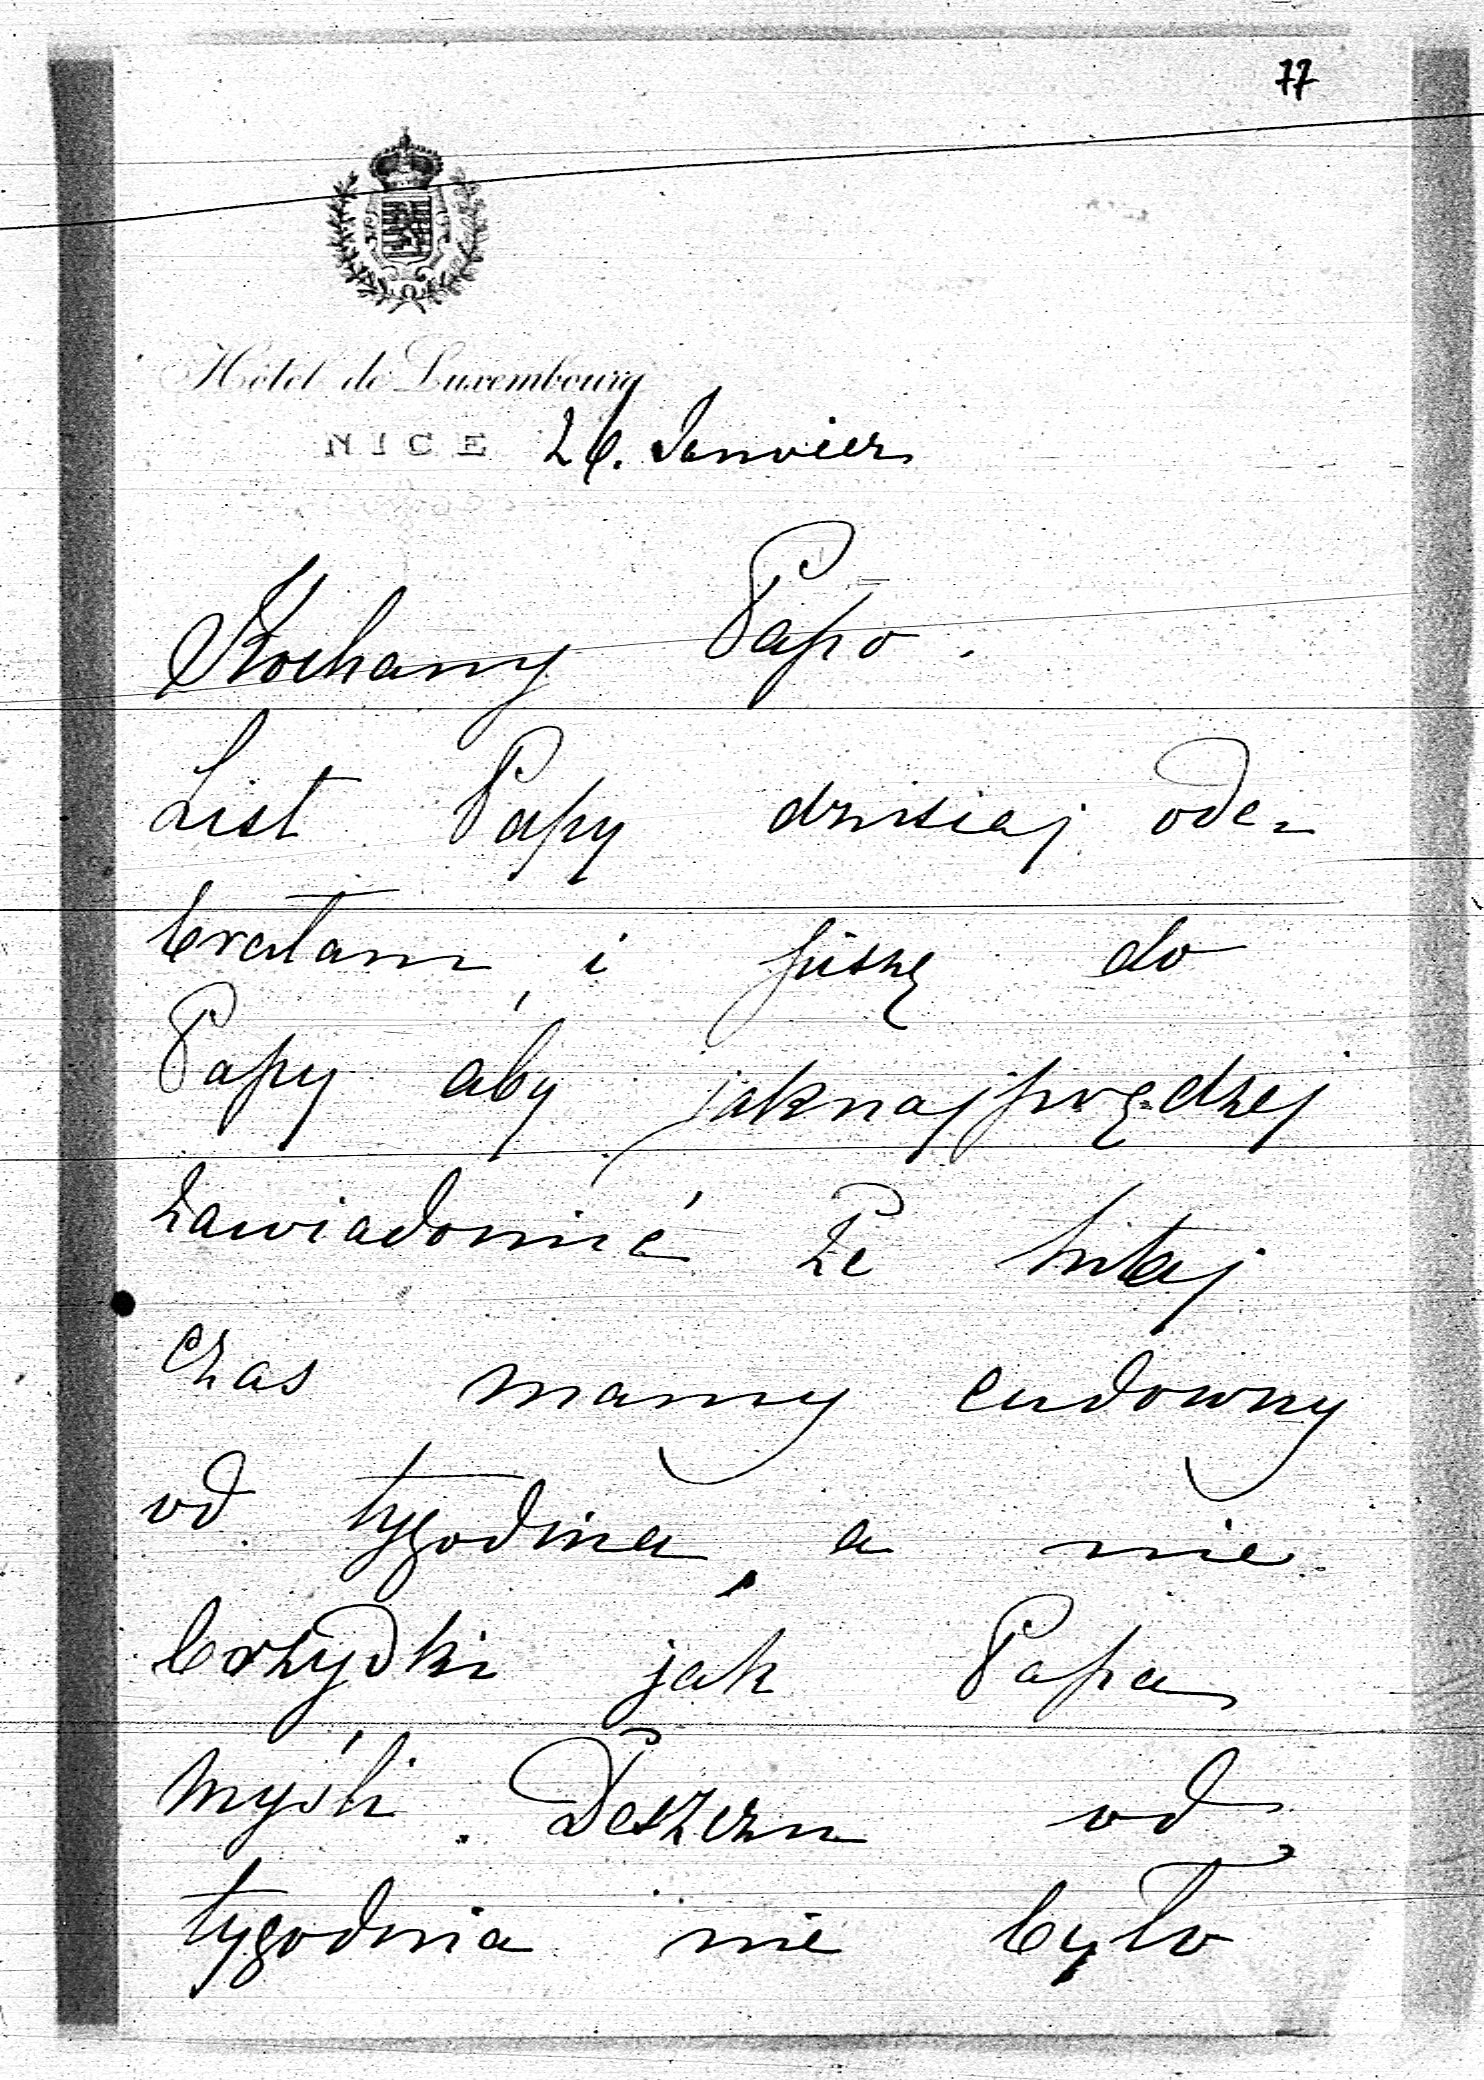 77
Hôtel de Luxembourg
NICE 26. Janvier
Kochany Papo.
List Papy dzisiaj ode-
brałam i piszę do
Papy, aby jaknajprędzej
zawiadomić że tutaj
czas mamy cudowny
od tygodnia, a nie
brzydki jak Papa
myśli. Deszczu od
tygodnia nie było